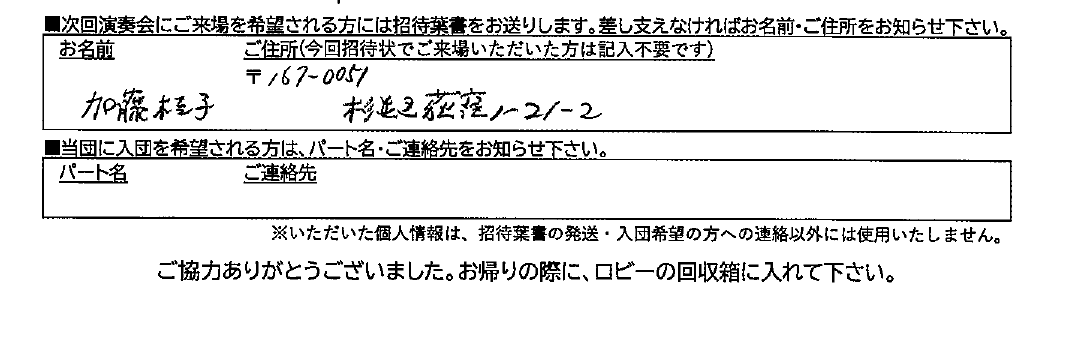 ■次回演奏会にご来場を希望される方には招待葉書をお送りします。差し支えなければお名前・ご住所をお知らせ下さい。
お名前 ご住所(今回招待状でご来場いただいた方は記入不要です)
〒167-0051
加藤桂子 杉並区荻窪1-21-2
■当団に入団を希望される方は、パート名・ご連絡先をお知らせ下さい。
パート名 ご連絡先
※いただいた個人情報は、招待葉書の発送・入団希望の方への連絡以外には使用いたしません。
ご協力ありがとうございました。お帰りの際に、ロビーの回収箱に入れて下さい。